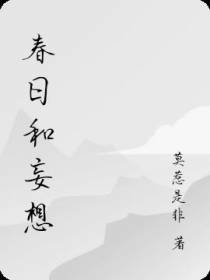 春日和妄想
莫惹是非 著